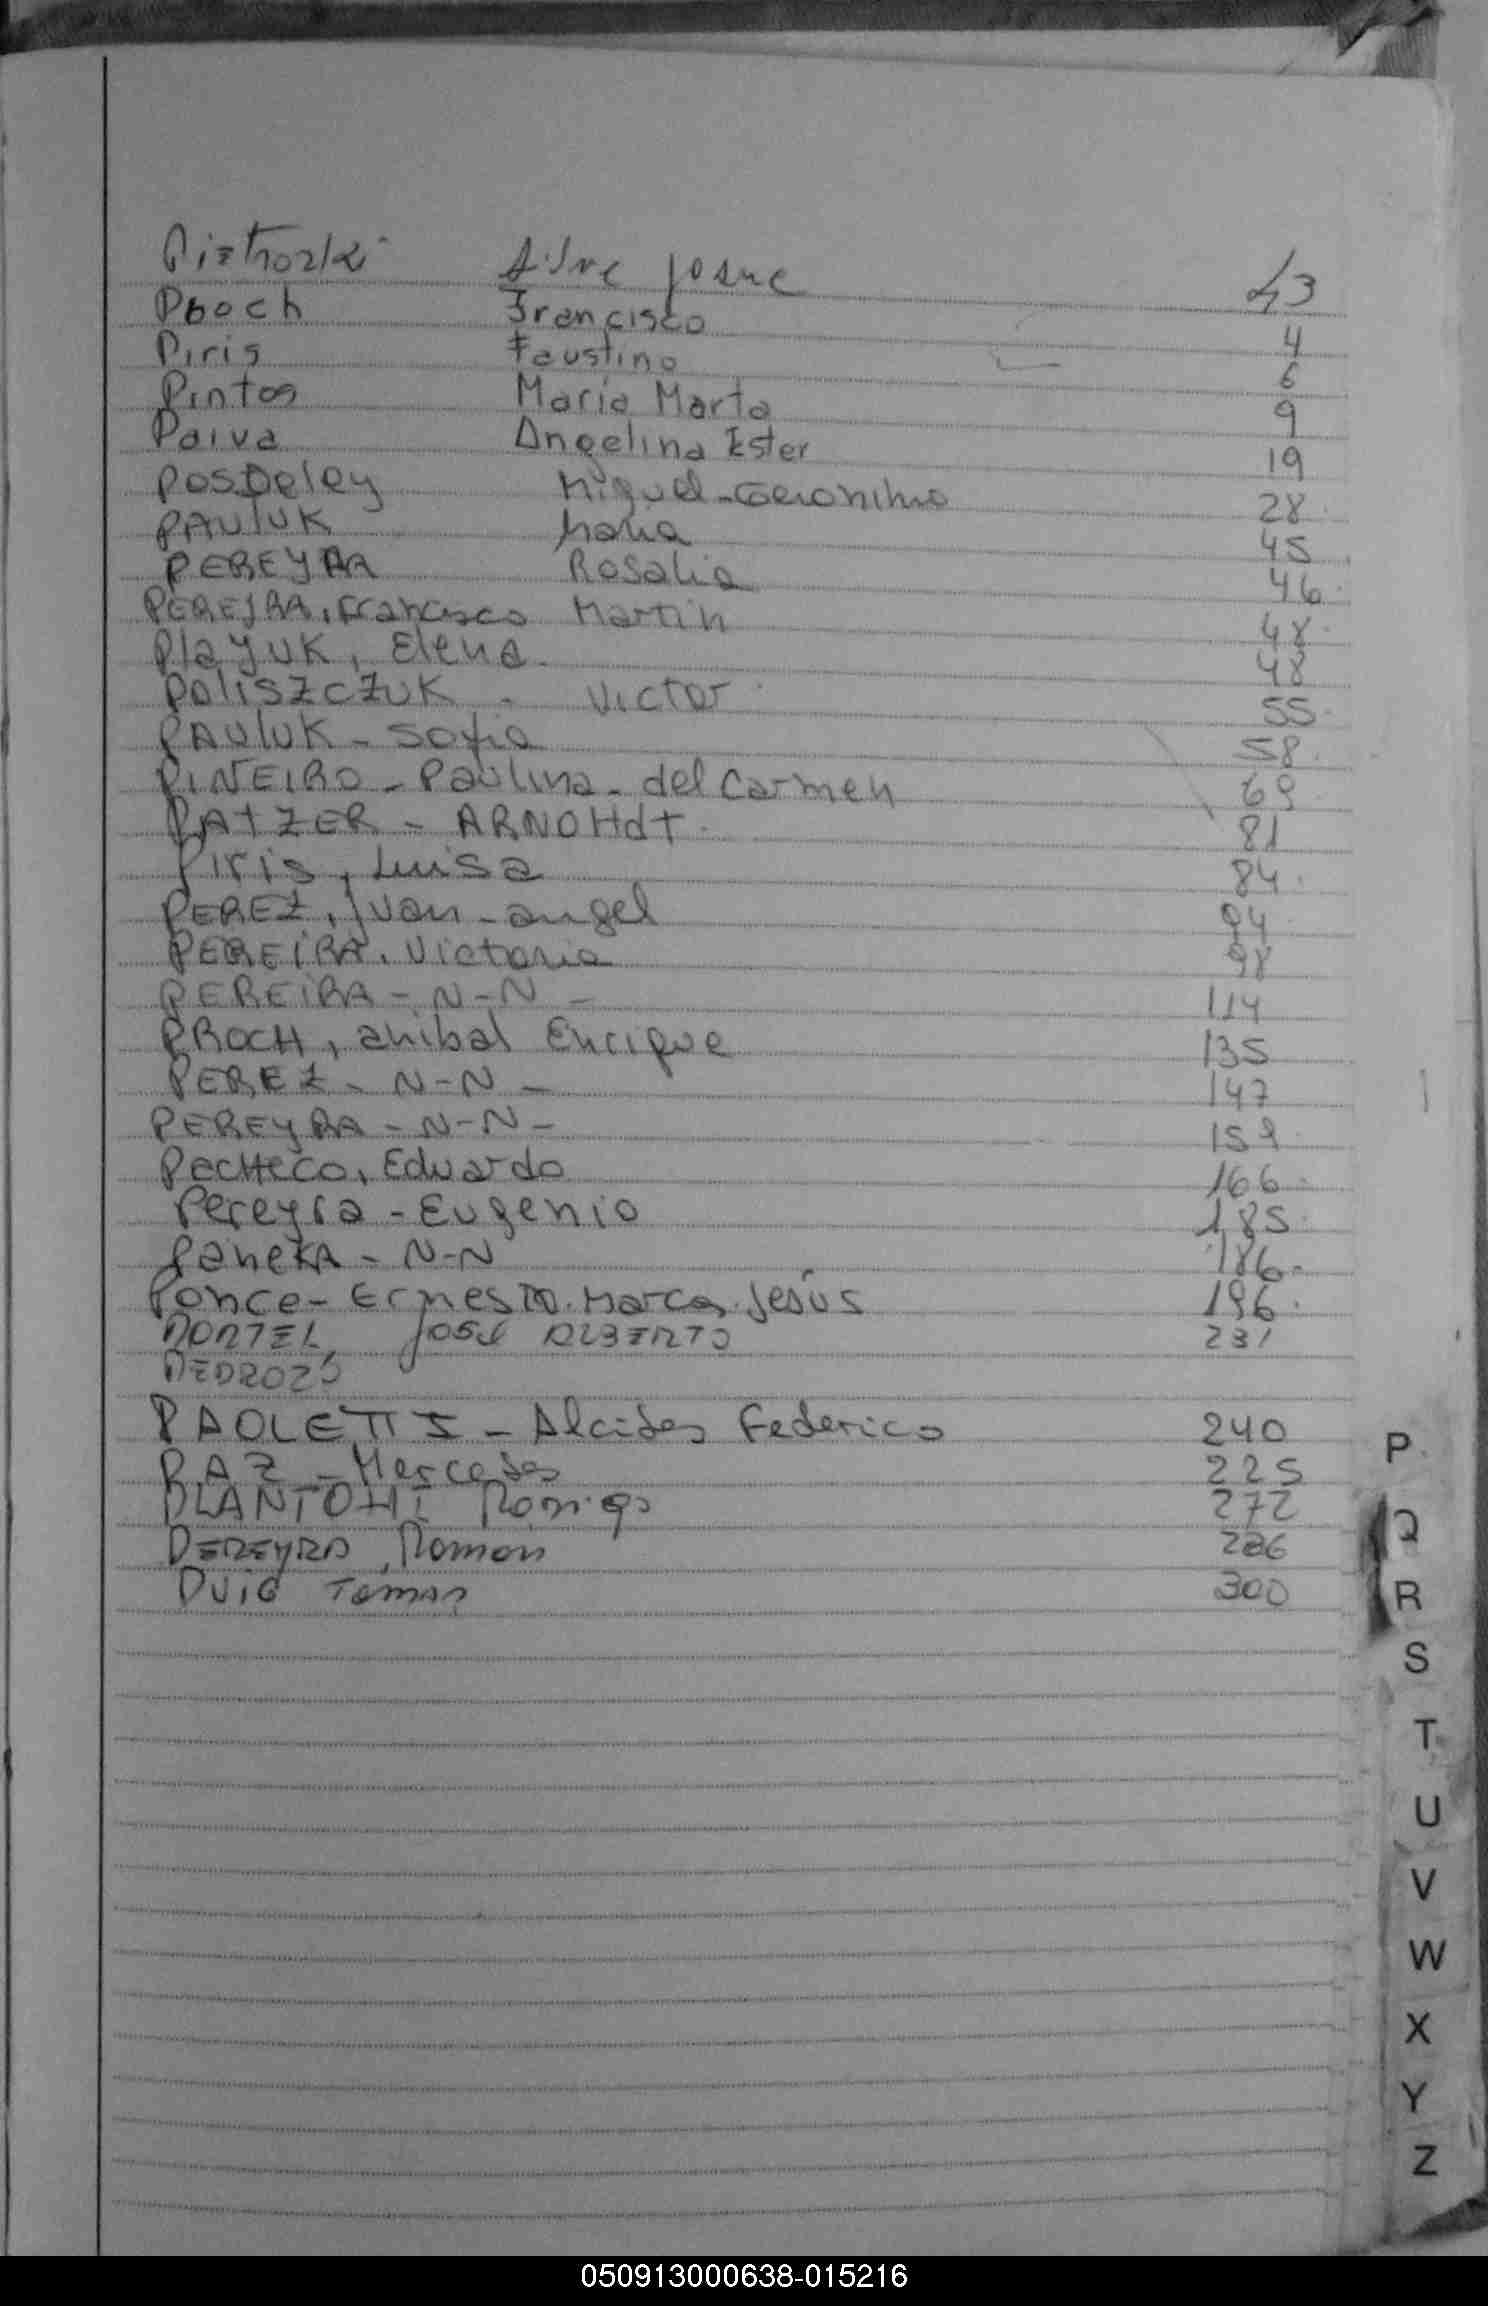 Pietrozki 43
Proch Francisco 4
Piris Faustino 6
Pintos Maria Marta 9
Paiva Angelina Ester 19
PosDeley Miguel-Geronimo 28
PAULUK Maria 45
PEREYRA Rosalia 46
PEREJRA, Francisco Martin 48
Playuk, Elena 48
PoliszczuK - Victor 55
PAULUK - Sofia 58
PiÑEIRO - Paulina - del Carmen 69
PATZER - ARNOHdT 81
Piris, Luisa 84
PEREZ, Juan-angel 94
PEREIRA, Victoria 98
PEREIRA - N-N - 114
PROCH, anibal Enrique 135
PEREZ - N-N - 147
PEREYRA - N-N - 159
PecHeco, Eduardo 166
Pereyra - Eugenio 185
PaneKA - N-N 186
Ponce - Ernesto. Marcos. Jesús 196
PORTEL, José ALBERTO 231
PEDROZO
PAOLETTI - Alcides Federico 240
PAZ - Mercedes 225
PLANTOHI 272
PEREYRA, Ramon 286
PUIG Tomas 300
P
Q
R
S
T
U
V
W
X
Y
Z
050913000638-015216